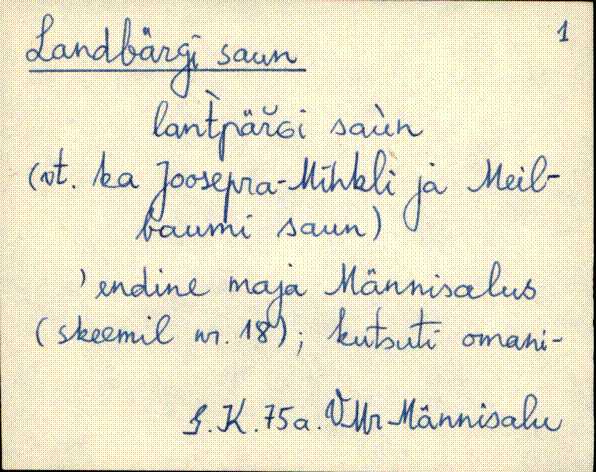 Landbärgi saun 1
lant̀päŕɢi saùn
(vt. ka Joosepra-Mihkli ja Meil-
baumi saun)
) endine maja Männisalus
(skeemil nr. 18); kutsuti omani-
S. K. 75a. VMr Männisalu